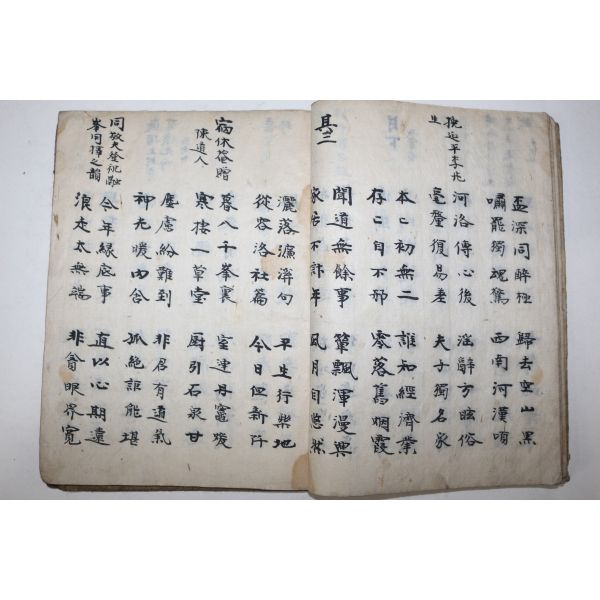 盃深同醉極 歸去空山黑
嘯罷獨魂驚 西南河漢
挽延平李先
生
河洛傳心後 淫辭方眩俗
毫釐復易差 夫子獨名家
本〻初無二 誰知經濟業
存〻自不邪 零落舊烟霞
其三
聞道無餘事 簞瓢渾漫與
居不計年 風月自悠然
灑落濂溪句 平生行樂地
從容洛社篇 今日但新阡
病休菴贈
陳道人
暮入千峯裏 室連丹竈暖
寒棲一草堂 厨引石泉甘
塵慮紛難到 非君有道氣
神光暖內含 孤絕詎能堪
同敬夫登祝融
峯同擇之韻
今年緣底事 直以心期遠
浪走太無端 非貪眼界寬